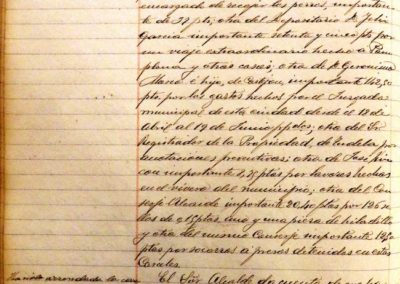 encargado de recoger los perros, importan-
te de 32 pts; otra del Depositario D. Felix
Garcia importante setenta y cinco pts por
un viaje extraordinario hecho a Pam-
plona y otras cosas; otra de D. Geronimo
é hijo, de importante 142,50
pts, por los gastos hechos por el Juzgado
municipal de esta ciudad desde el 18 de
Abril al 19 de Junio ppdos; otra del Sr
Registrador de la Propiedad, de Tudela por
anotaciones preventivas; otra de José
importante 4,75 ptas por labores hechas
en el vivero del municipio; otra del Con-
serje Alcaide importante 20,40 ptas por 126 se-
llos de 0,15 ptas uno y una pieza de hiladillo
y otra del mismo Conserje importante
ptas por socorros á presos detenidos en estas
Carceles
El Sr Alcalde da cuenta de
arrendada la